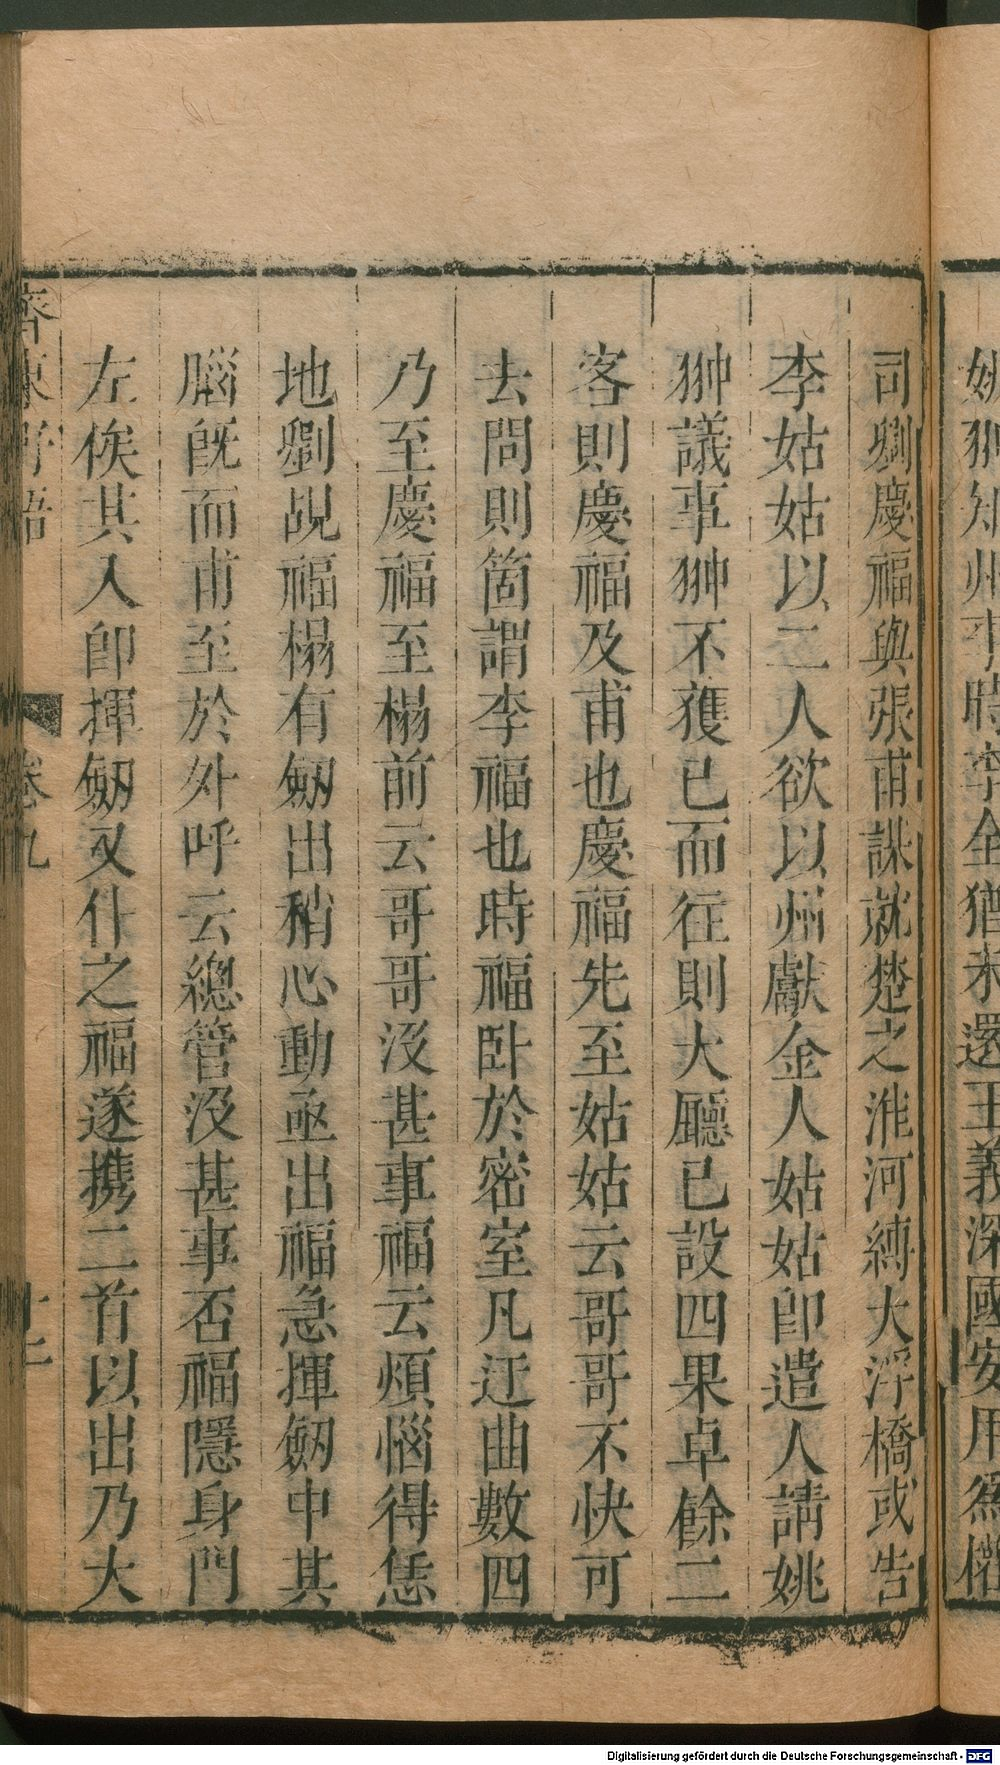 姚翀知州事時李全猶未還王義深國安用爲權
司劉慶福與張甫謀就楚之淮河縛大浮橋或告
李姑姑以二人欲以州獻金人姑姑卽遣人請姚
翀議事翀不獲已而往則大廳已設四果卓餘二
客則慶福及甫也慶福先至姑姑云哥哥不快可
去問則箇謂李福也時福卧於密室凡迂曲數四
乃至慶福至榻前云哥哥沒甚事福云煩惱得恁
地劉覘福榻有劒出稍心動亟出福急揮劒中其
腦旣而甫至於外呼云總管沒甚事否福隱身門
左俟其入卽揮劒又仆之福遂携二首以出乃大
齊東野語
卷九
十二
Digitalisierung gefördert durch die Deutsche Forschungsgemeinschaft - DFG